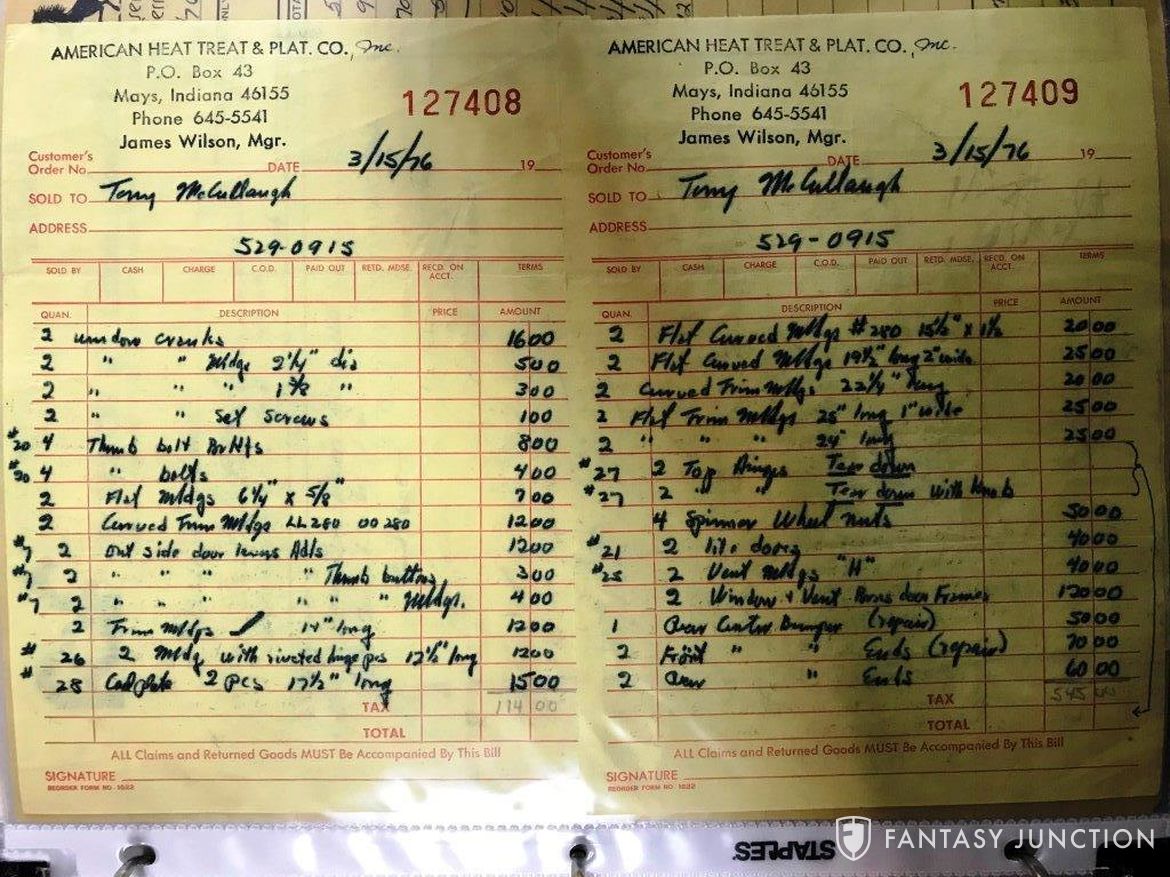 AMERICAN HEAT TREAT & PLAT. CO., Inc.
P.O. Box 43
Mays, Indiana 46155
Phone 645-5541
James Wilson, Mgr.
127408
Customer's
Order No. DATE 3/15/76 19
SOLD TO Terry McCullaugh
ADDRESS
529-0915
SOLD BY CASH CHARGE C.O.D. PAID OUT RETD. MDSE. RECD. ON ACCT. TERMS
QUAN. DESCRIPTION PRICE AMOUNT
2 window cranks 1600
2 " " Mldgs 2 1/4" dia 500
2 " " " 1 3/8 " 300
2 " " Set Screws 100
#20 4 Thumb bolt 800
#20 4 " bolts 400
2 Flat Mldgs 6 1/4" x 5/8" 700
2 Curved Trim Mldgs LL280 00280 1200
#7 2 out side door 1200
#7 2 " " " " Thumb buttons 300
#7 2 " " " " " Mldgs. 400
2 Trim Mldgs 14" long 1200
# 26 2 Mldg with riveted hinge pcs 12 1/2" long 1200
# 28 Cadplate 2 pcs 17 1/2" long 1500
TAX 114 00
TOTAL
ALL Claims and Returned Goods MUST Be Accompanied By This Bill
SIGNATURE
REORDER FORM NO. 1622
AMERICAN HEAT TREAT & PLAT. CO., Inc.
P.O. Box 43
Mays, Indiana 46155
Phone 645-5541
James Wilson, Mgr.
127409
Customer's
Order No. DATE 3/15/76 19
SOLD TO Terry McCullaugh
ADDRESS
529-0915
SOLD BY CASH CHARGE C.O.D. PAID OUT RETD. MDSE. RECD. ON ACCT. TERMS
QUAN. DESCRIPTION PRICE AMOUNT
2 Flat Curved Mldgs #280 15 1/2" x 1 1/2 2000
2 Flat Curved Mldgs 19 1/2" long 2" wide 2500
2 Curved Trim Mldgs 22 1/4" long 2000
2 Flat Trim Mldgs 25" long 1" wide 2500
2 " " " 24" long 2500
#27 2 Top Hinges Tear down
#27 2 " " Tear down with knob
4 Spinner Wheel nuts 5000
#21 2 lite doors 4000
#25 2 Vent Mldgs "H" 4000
2 Window & Vent door Frames 12000
1 Center Bumper (repair) 5000
2 Front " Ends (repair) 7000
2 " Ends 6000
TAX 545 00
TOTAL
ALL Claims and Returned Goods MUST Be Accompanied By This Bill
SIGNATURE
REORDER FORM NO. 1622
STAPLES
FANTASY JUNCTION